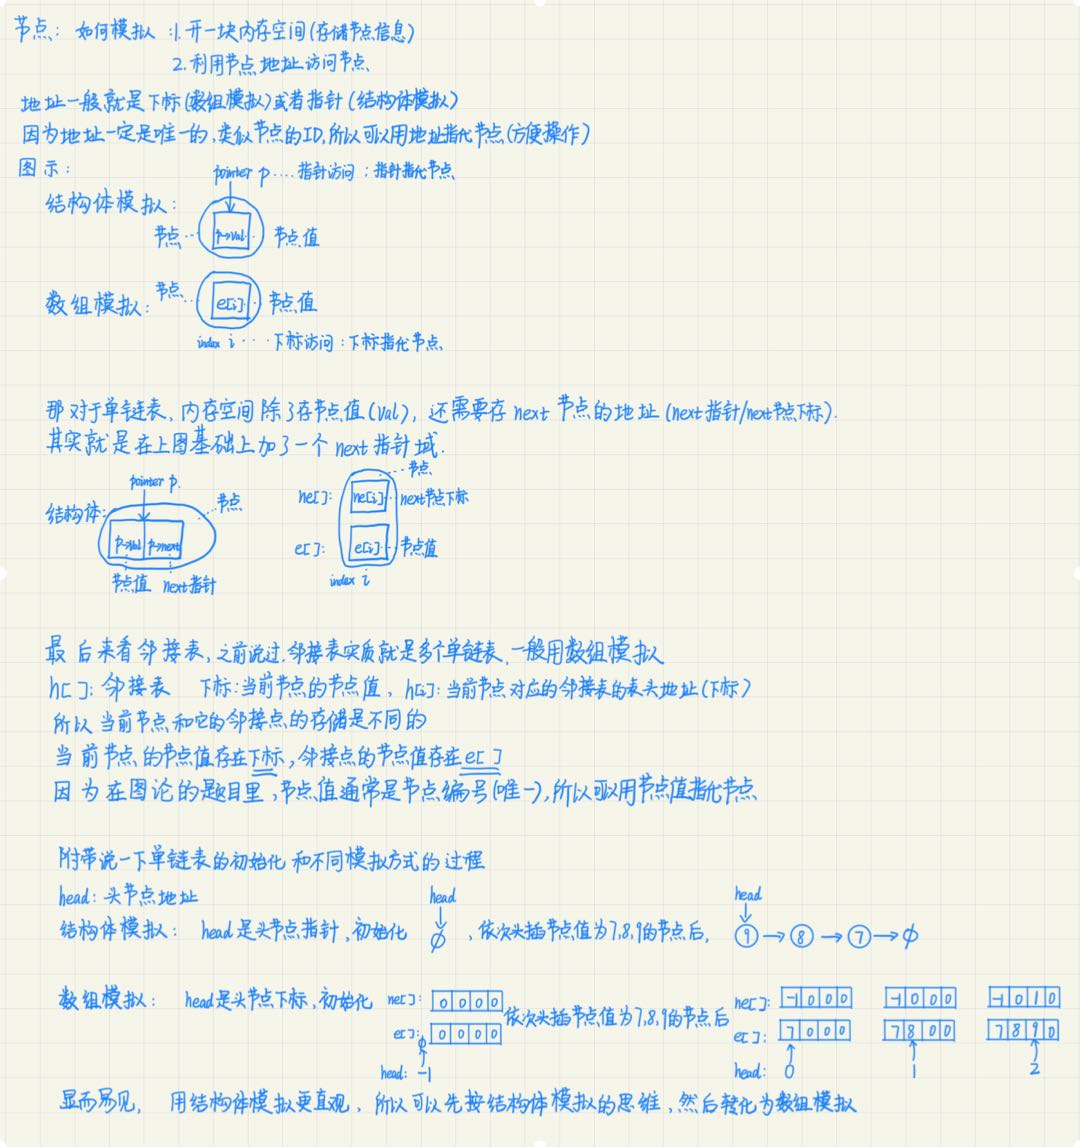 节点: 如何模拟 :1.开一块内存空间(存储节点信息)
2.利用节点地址访问节点、
地址一般就是下标(数组模拟)或者指针(结构体模拟)
因为地址一定是唯一的,类似节点的ID,所以可以用地址指代节点(方便操作)
图示:
pointer p....指针访问:指针指代节点、
结构体模拟:
节点.. p→val.. 节点值
数组模拟: 节点.. e[i].. 节点值
index i ···· 下标访问:下标指代节点、
那对于单链表、内存空间除了存节点值(val), 还需要存 next 节点的地址(next指针/next节点下标).
其实就是在上图基础上加了一个 next 指针域.
pointer p.
结构体: 节点
p→val p→next
节点值 next指针
节点
ne[]: ne[i].. next节点下标
e[]: e[i].. 节点值
index i
最后来看邻接表、之前说过,邻接表实质就是多个单链表,一般用数组模拟
h[]: 邻接表 下标:当前节点的节点值、h[i]:当前节点对应的邻接表的表头地址(下标)
所以当前节点和它的邻接点的存储是不同的
当前节点的节点值存在下标,邻接点的节点值存在e[]
因为在图论的题目里,节点值通常是节点编号(唯一),所以可以用节点值指代节点、
附带说一下单链表的初始化和不同模拟方式的过程
head: 头节点地址
结构体模拟: head是头节点指针、初始化 head ↓ ∅ 、依次头插节点值为7,8,9的节点后, head ↓ 9→8→7→∅
数组模拟: head是头节点下标、初始化 ne[]: 0 0 0 0 e[]: 0 0 0 0 head: -1 依次头插节点值为7,8,9的节点后
ne[]: -1 0 0 0 -1 0 0 0 -1 0 1 0
e[]: 7 0 0 0 7 8 0 0 7 8 9 0
head: 0 1 2
显而易见, 用结构体模拟更直观、所以可以先按结构体模拟的思维,然后转化为数组模拟